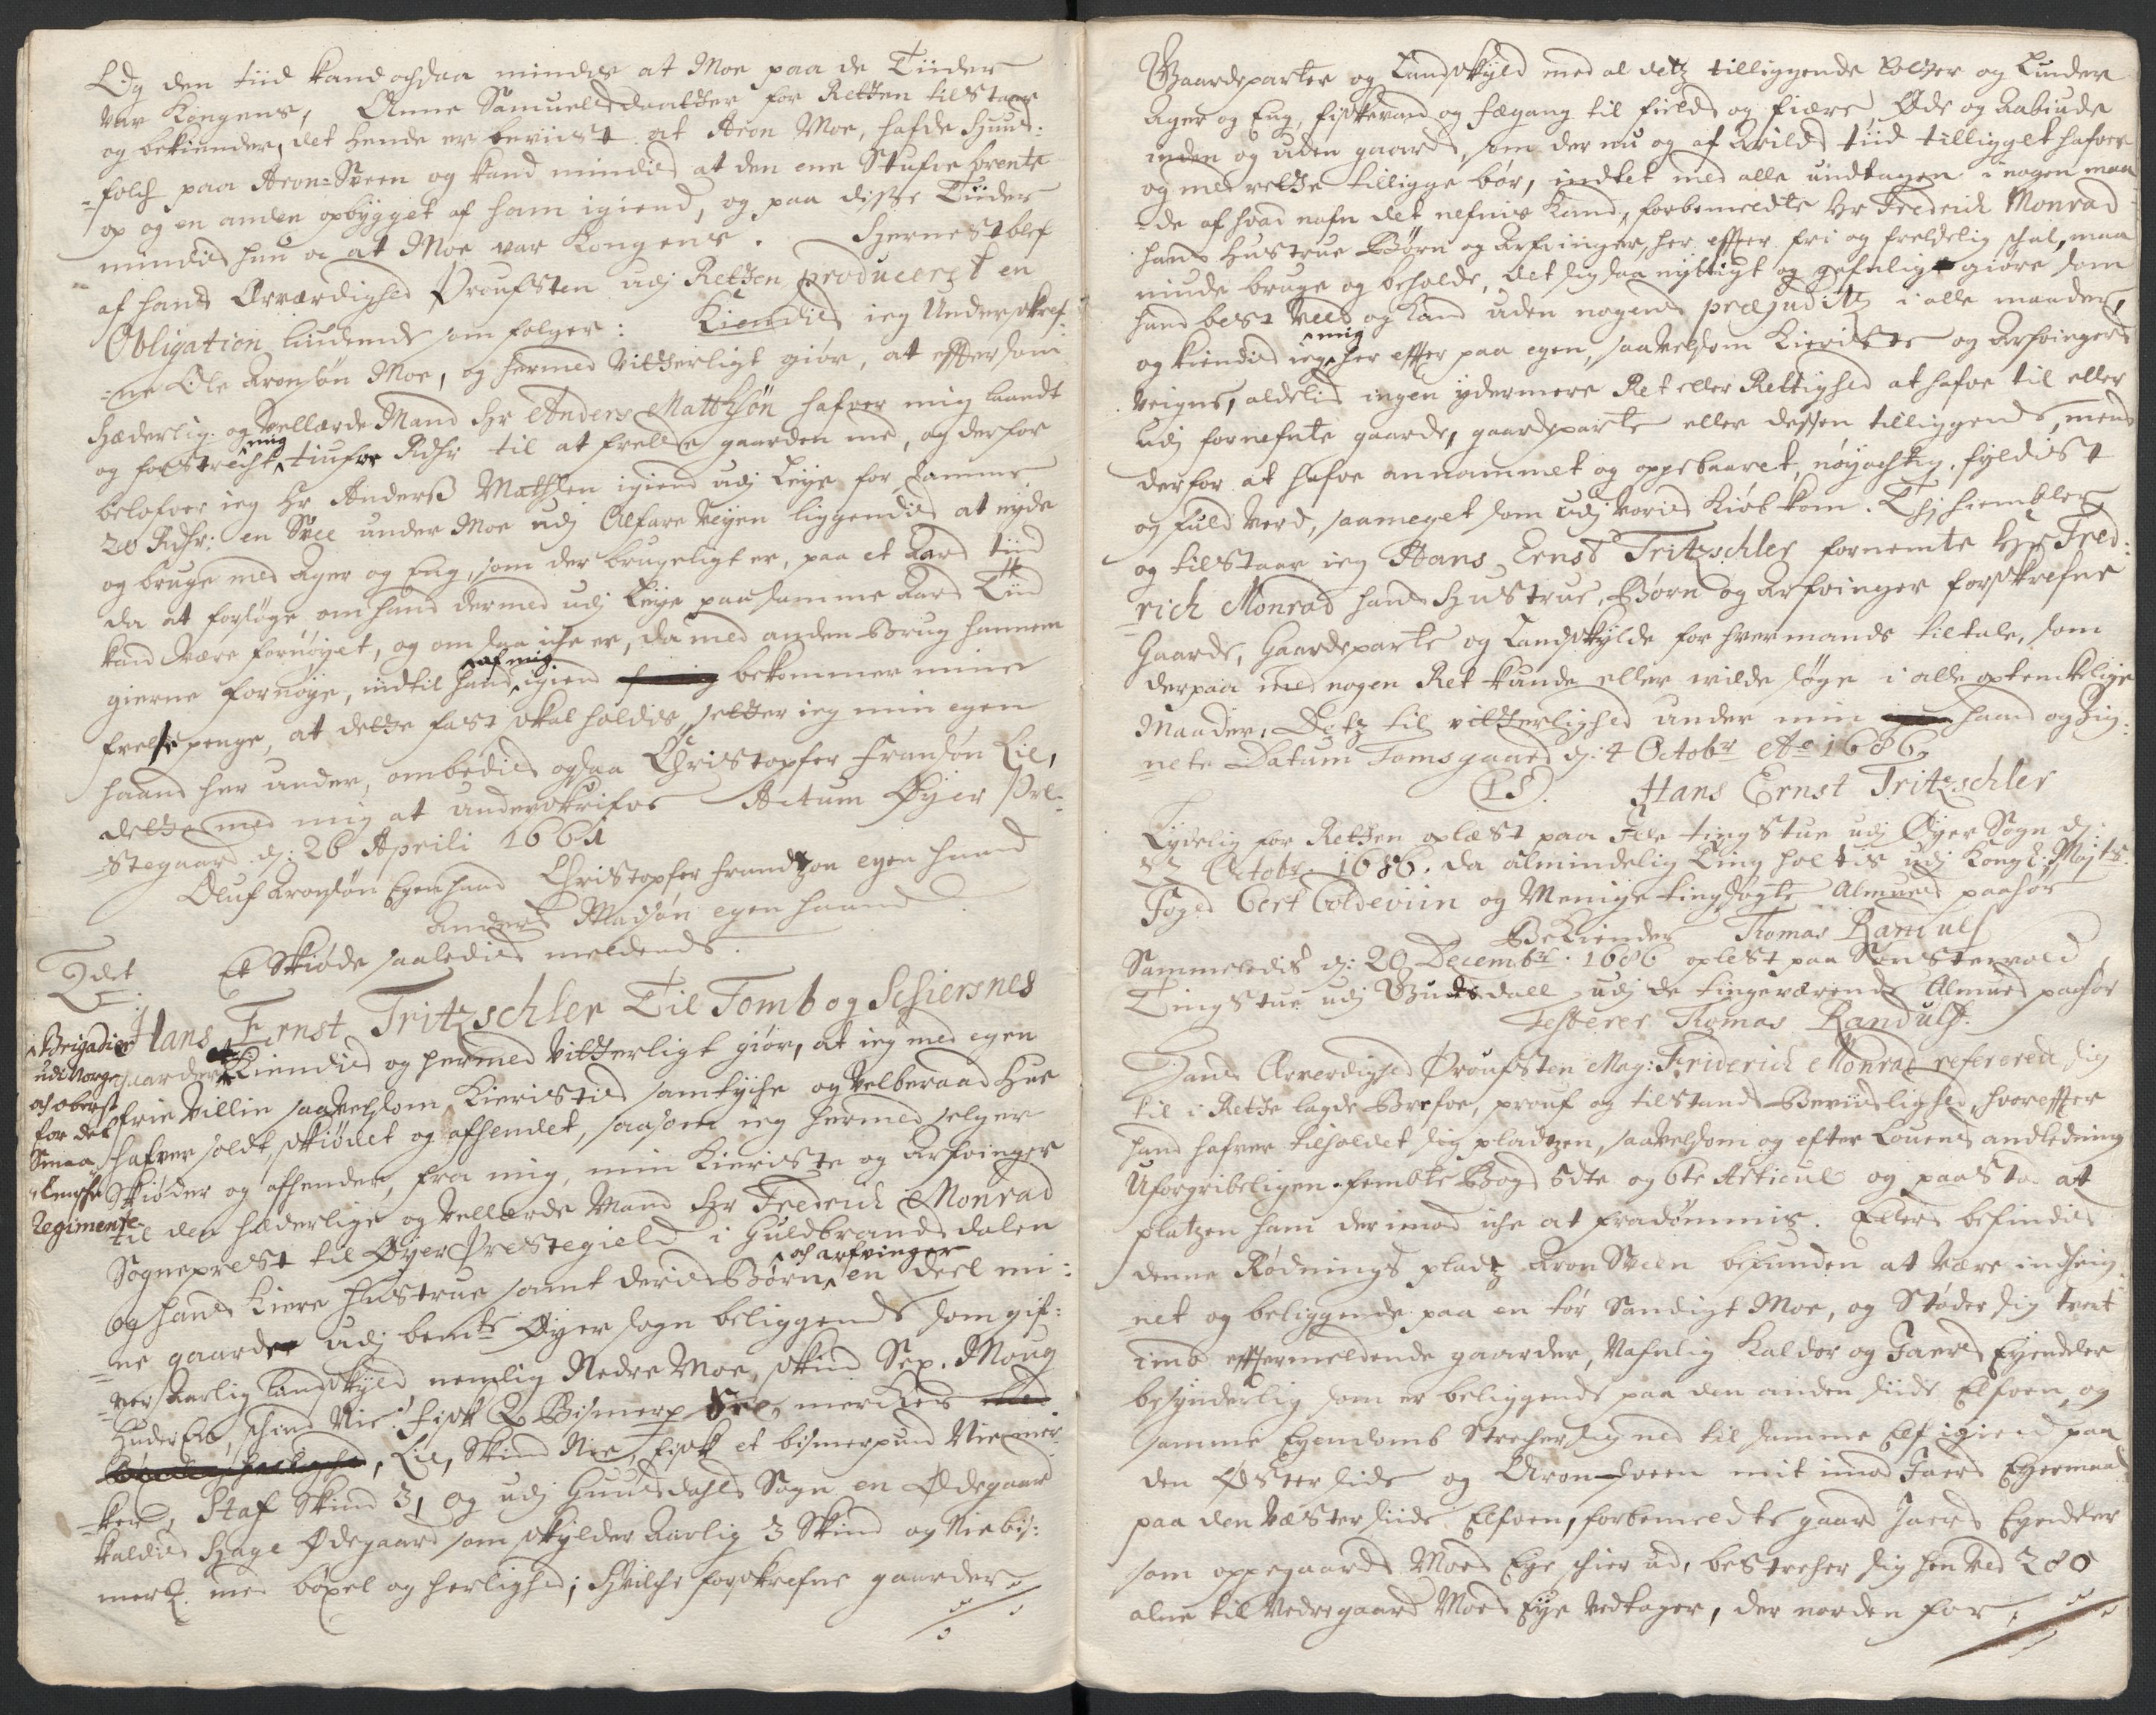 Og den tiid kand ochsaa mindis at Moe paa de Tiider
var Kongens, Anne Samuelsdaatter for Retten tilstaar
og bekiender, det hende er beviist at Aron Moe, hafde huus-
-folch paa Aron-Sveen og kand mindis at den ene Stufve brente
op og en anden opbygget af ham igiend, og paa disse Tiider
mindis hun oc at Moe var Kongens. Hernest blef
af hans Ærværdighed Proufsten udj Retten produceret en
Obligation liudende som følger: Kiendis ieg Underskref-
-ne Ole Aronsøn Moe, og hermed vitterligt giør, at efftersom
Hæderlig og Vellærde Mand Hr Anders Matthsøn hafver mig laandt
og forstrecht mig tiufve Rdhr til at frelse gaarden med, og derfor
belofver ieg Hr Anderss Mathsen igiend udj Leye for samme
20 Rdhr: en Svee under Moe udj Alfare Veyen liggendis at nyde
og bruge med Ager og Eng, som der brugeligt er, paa et Aars tiid
da at forsøge om hand dermed udj Leye paa samme Aars Tiid
kand være fornøyet, og om saa iche er, da med anden Brug hannem
gierne fornøye, indtil hand af mig igien bekommer mine
frelsepenge, at dette fast skal holdis, setter ieg min egen
haand her under, ombedis ogsaa Christopfer Fransøn Lie,
dette med mig at underskrifve Actum Øyer Pre-
-stegaard d: 26 Aprili 1661
Oluf Aronsøn Egenhand Christopfer Frandtzon egen haand
Anders Madsøn egen haand
2det Et Skiøde saaledis meldende.
Hans Ernst Tritzschler Til Tomb og Schiersnes
Brigadier udi Norge och oberst for det Smaa lensche Regimente
gaarder Kiendis og hermed vitterligt giør, at ieg med egen
frie villie saavelsom Kieristis samtyche og velberaad Hue
hafver soldt, skiødet og afhendet, saasom ieg hermed selger
Skiøder og afhender, fra mig, min Kieriste og Arfvinger
til den hæderlige og vellærde Mand Hr Frederich Monrad
Sogneprest til Øyer Prestegield i Guldbrandsdalen
og hans Kiere Hustrue samt deris Børn och arfvinger en deel mi-
-ne gaarder udj bemte Øyer sogn beliggende som gif-
-ver Aarlig landskyld nemlig Nedre Moe, skind Sex. Moug
Huder En, skind Nie: Fisk 2 Bismerp Sex merker
, Lie, Skind Nie, Fisk et bismerpund Nie mer-
-ker, Staf Skind 3, og udj Guusdahls Sogn en Ødegaard
kaldis Hage Ødegaard som skylder Aarlig 3 Skind og Nie bis-
merk. med böxel og herlighed; Hvilche forskrefne gaarder
Gaardeparter og Landskyld med al detz tilliggende Lotter og Lunder
Ager og Eng, fiskevand og fægang til fields og fiære, Øde og Aabiude
inden og uden gaards, som der nu og af Arilds tiid tilligget hafver
og med rette tilligge bør, indtet med alle undtagen i nogen maa-
-de af hvad nafn det nefnis kand, forbemeldte Hr Fredrich Monrad
hans Hustrue Børn og Arfvinger, her effter fri og frelselig schal, maa
niude bruge og beholde, det sig saa nyttigt og gafnligt giøre som
hand best veed og kand uden nogens præjuditz i alle maader,
og kiendis ieg mig her effter paa egen, saavelsom Kieristes og Arfvingers
veigne, aldelis ingen ydermere Ret eller Rettighed at hafve til eller
udj fornefnte gaarde, gaardeparte eller dessen tilliggende, mens
derfor at hafve annammet og oppebaaret, nøyachtig, fyldist
og fuld verd, saameget som udj voris Kiøb kom. Thj hiembler
og tilstaar ieg Hans Ernst Tritzschler fornemte Hr Fred-
rich Monrad hans Hustrue, Børn og Arfvinger forskrefne
Gaarde, Gaardeparte og Landskylde for hvermands tiltale, som
derpaa med nogen Ret kunde eller wilde søge i alle optenkelige
Maader, Detz til vitterlighed under min haand og Zig-
-nete Datum Tomsgaard d: 4 Octobr Ao 1686
(LS). Hans Ernst Tritzschler
Lydelig for Retten oplæst paa Ille tingstue udj Øyer Sogn d:
Octobr. 1686. da almindelig Ting holtis udj Kongl: Mayts
Foged Cert Coldeviin og Menige tingsøgte Almues paahør
Bekiender Thomas Randulf
Sammeledis d: 20 Decembr. 1686 oplest paa Sønsteevold
Tingstue udj Gudsdall udj de tingværende Almues paahør
Testerer Thomas Randulf.
Hans Ærverdighed Proufsten Mag: Friderich Monrad refererede sig
til i Rette lagde Brefve, prouf og tilstands Beviislighed, hvoreffter
hand hafver tilholdet sig pladtzen, saavelsom og efter Louens andledning
Uforgribeligen fembte Bog 5dte og 6te Articul og paastod at
platzen ham derimod iche at fradömmis. Ellers befindis
denne Rødnings pladtz Aron Sveen befunden at være indheig-
-net og beliggende paa en tør Sandigt Moe, og Støder sig tvert
imod effermeldende gaarder, Nafnlig Kaldor og Jaers Eyendeler
besynderlig som er beliggende paa den anden siide Elfven, og
samme Egendomb strecher sig ned til samme Elf igien paa
den Østerside og Aron-Sveen mit imod Jaers Eyermaal
paa den Væster siide Elfven, forbemeldte gaard Jaers Eyendeler
som oppegaards Moes Eye schier ud, bestrecher sig hen ved 280
alne til Nedregaard Moes Eye vedtager, der norden for,